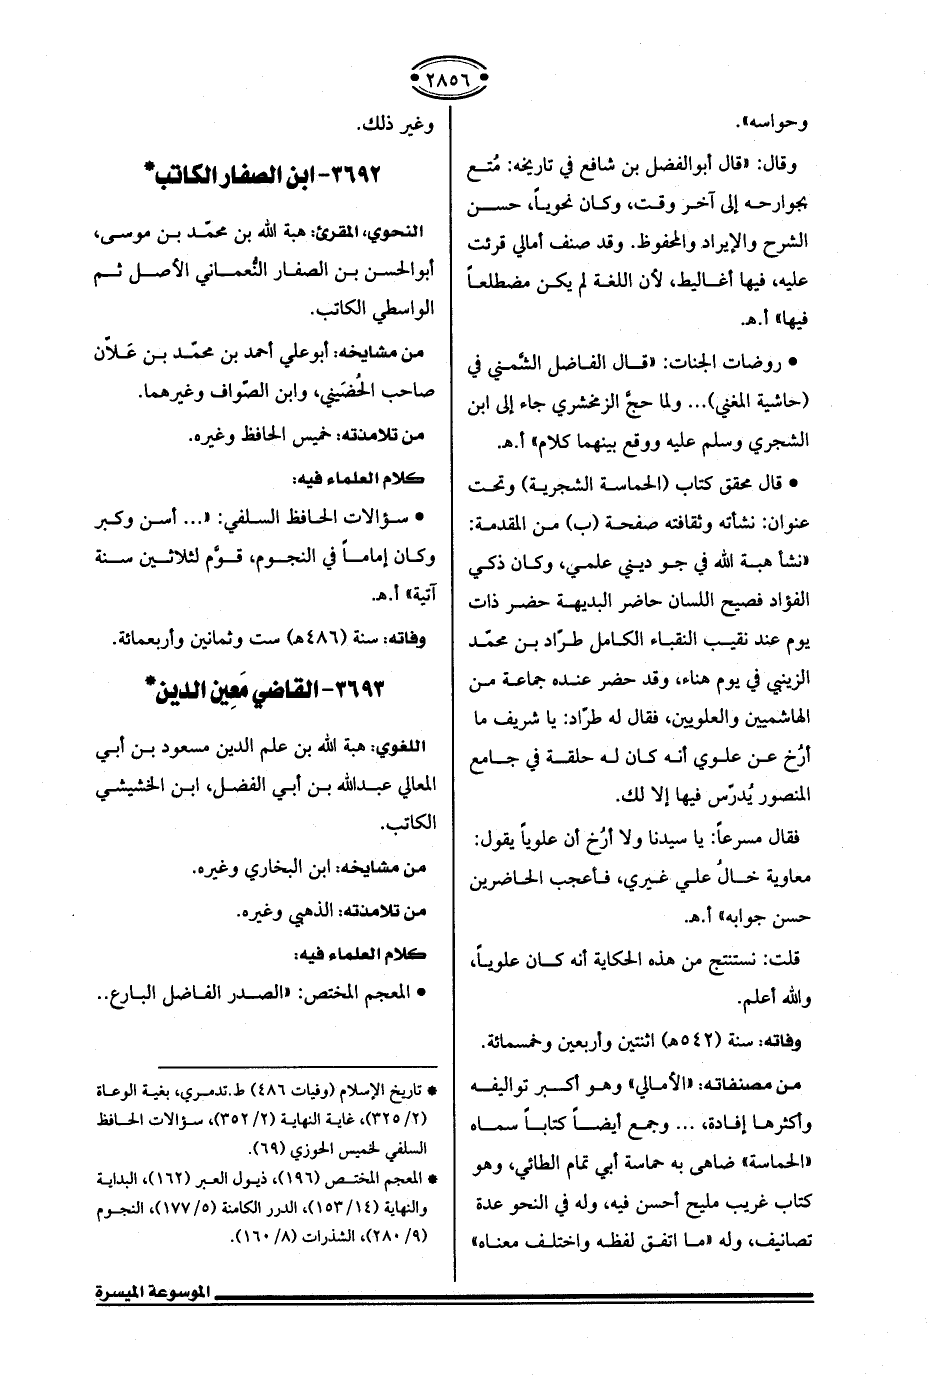 ٢٨٥٦
وحواسه».
وقال: «قال أبوالفضل بن شافع في تاريخه: مُتع
بجوارحه إلى آخر وقت، وكان نحوياً، حسن
الشرح والإيراد والمحفوظ. وقد صنف أمالي قرئت
عليه، فيها أغاليط، لأن اللغة لم يكن مضطلعاً
فيها» أ.هـ.
• روضات الجنات: «قال الفاضل الشُّمني في
(حاشية المغني)... ولما حجَّ الزمخشري جاء إلى ابن
الشجري وسلم عليه ووقع بينهما كلام» أ.هـ.
• قال محقق كتاب (الحماسة الشجرية) وتحت
عنوان: نشأته وثقافته صفحة (ب) من المقدمة:
«نشأ هبة الله في جو ديني علمي، وكان ذكي
الفؤاد فصيح اللسان حاضر البديهة حضر ذات
يوم عند نقيب النقباء الكامل طرّاد بن محمّد
الزينبي في يوم هناء، وقد حضر عنده جماعة من
الهاشميين والعلويين، فقال له طرّاد: يا شريف ما
أرُخ عن علوي أنه كان له حلقة في جامع
المنصور يُدرّس فيها إلا لك.
فقال مسرعاً: يا سيدنا ولا أرُخ أن علوياً يقول:
معاوية خالُ علي غيري، فأعجب الحاضرين
حسن جوابه» أ.هـ.
قلت: نستنتج من هذه الحكاية أنه كان علوياً،
والله أعلم.
وفاته: سنة (٥٤٢هـ) اثنتين وأربعين وخمسمائة.
من مصنفاته: «الأمالي» وهو أكبر تواليفه
وأكثرها إفادة، ... وجمع أيضاً كتاباً سماه
«الحماسة» ضاهى به حماسة أبي تمام الطائي، وهو
كتاب غريب مليح أحسن فيه، وله في النحو عدة
تصانيف، وله «ما اتفق لفظه واختلف معناه»
وغير ذلك.
٣٦٩٢- ابن الصفار الكاتب*
النحوي، المقرئ: هبة الله بن محمّد بن موسى،
أبوالحسن بن الصفار النُّعماني الأصل ثم
الواسطي الكاتب.
من مشايخه: أبوعلي أحمد بن محمّد بن عَلاّن
صاحب الحُضَيني، وابن الصّواف وغيرهما.
من تلامذته: خميس الحافظ وغيره.
كلام العلماء فيه:
• سؤالات الحافظ السلفي: «... أسن وكبر
وكان إماماً في النجوم، قوَّم لثلاثين سنة
آتية» أ.هـ.
وفاته: سنة (٤٨٦هـ) ست وثمانين وأربعمائة.
٣٦٩٣- القاضي مَعِين الدين*
اللغوي: هبة الله بن علم الدين مسعود بن أبي
المعالي عبدالله بن أبي الفضل، ابن الخشيشي
الكاتب.
من مشايخه: ابن البخاري وغيره.
من تلامذته: الذهبي وغيره.
كلام العلماء فيه:
• المعجم المختص: «الصدر الفاضل البارع..
* تاريخ الإسلام (وفيات ٤٨٦) ط.تدمري، بغية الوعاة
(٣٢٥/٢)، غاية النهاية (٣٥٢/٢)، سؤالات الحافظ
السلفي لخميس الحوزي (٦٩).
* المعجم المختص (١٩٦)، ذيول العبر (١٦٢)، البداية
والنهاية (١٥٣/١٤)، الدرر الكامنة (١٧٧/٥)، النجوم
(٢٨٠/٩)، الشذرات (١٦٠/٨).
الموسوعة الميسرة